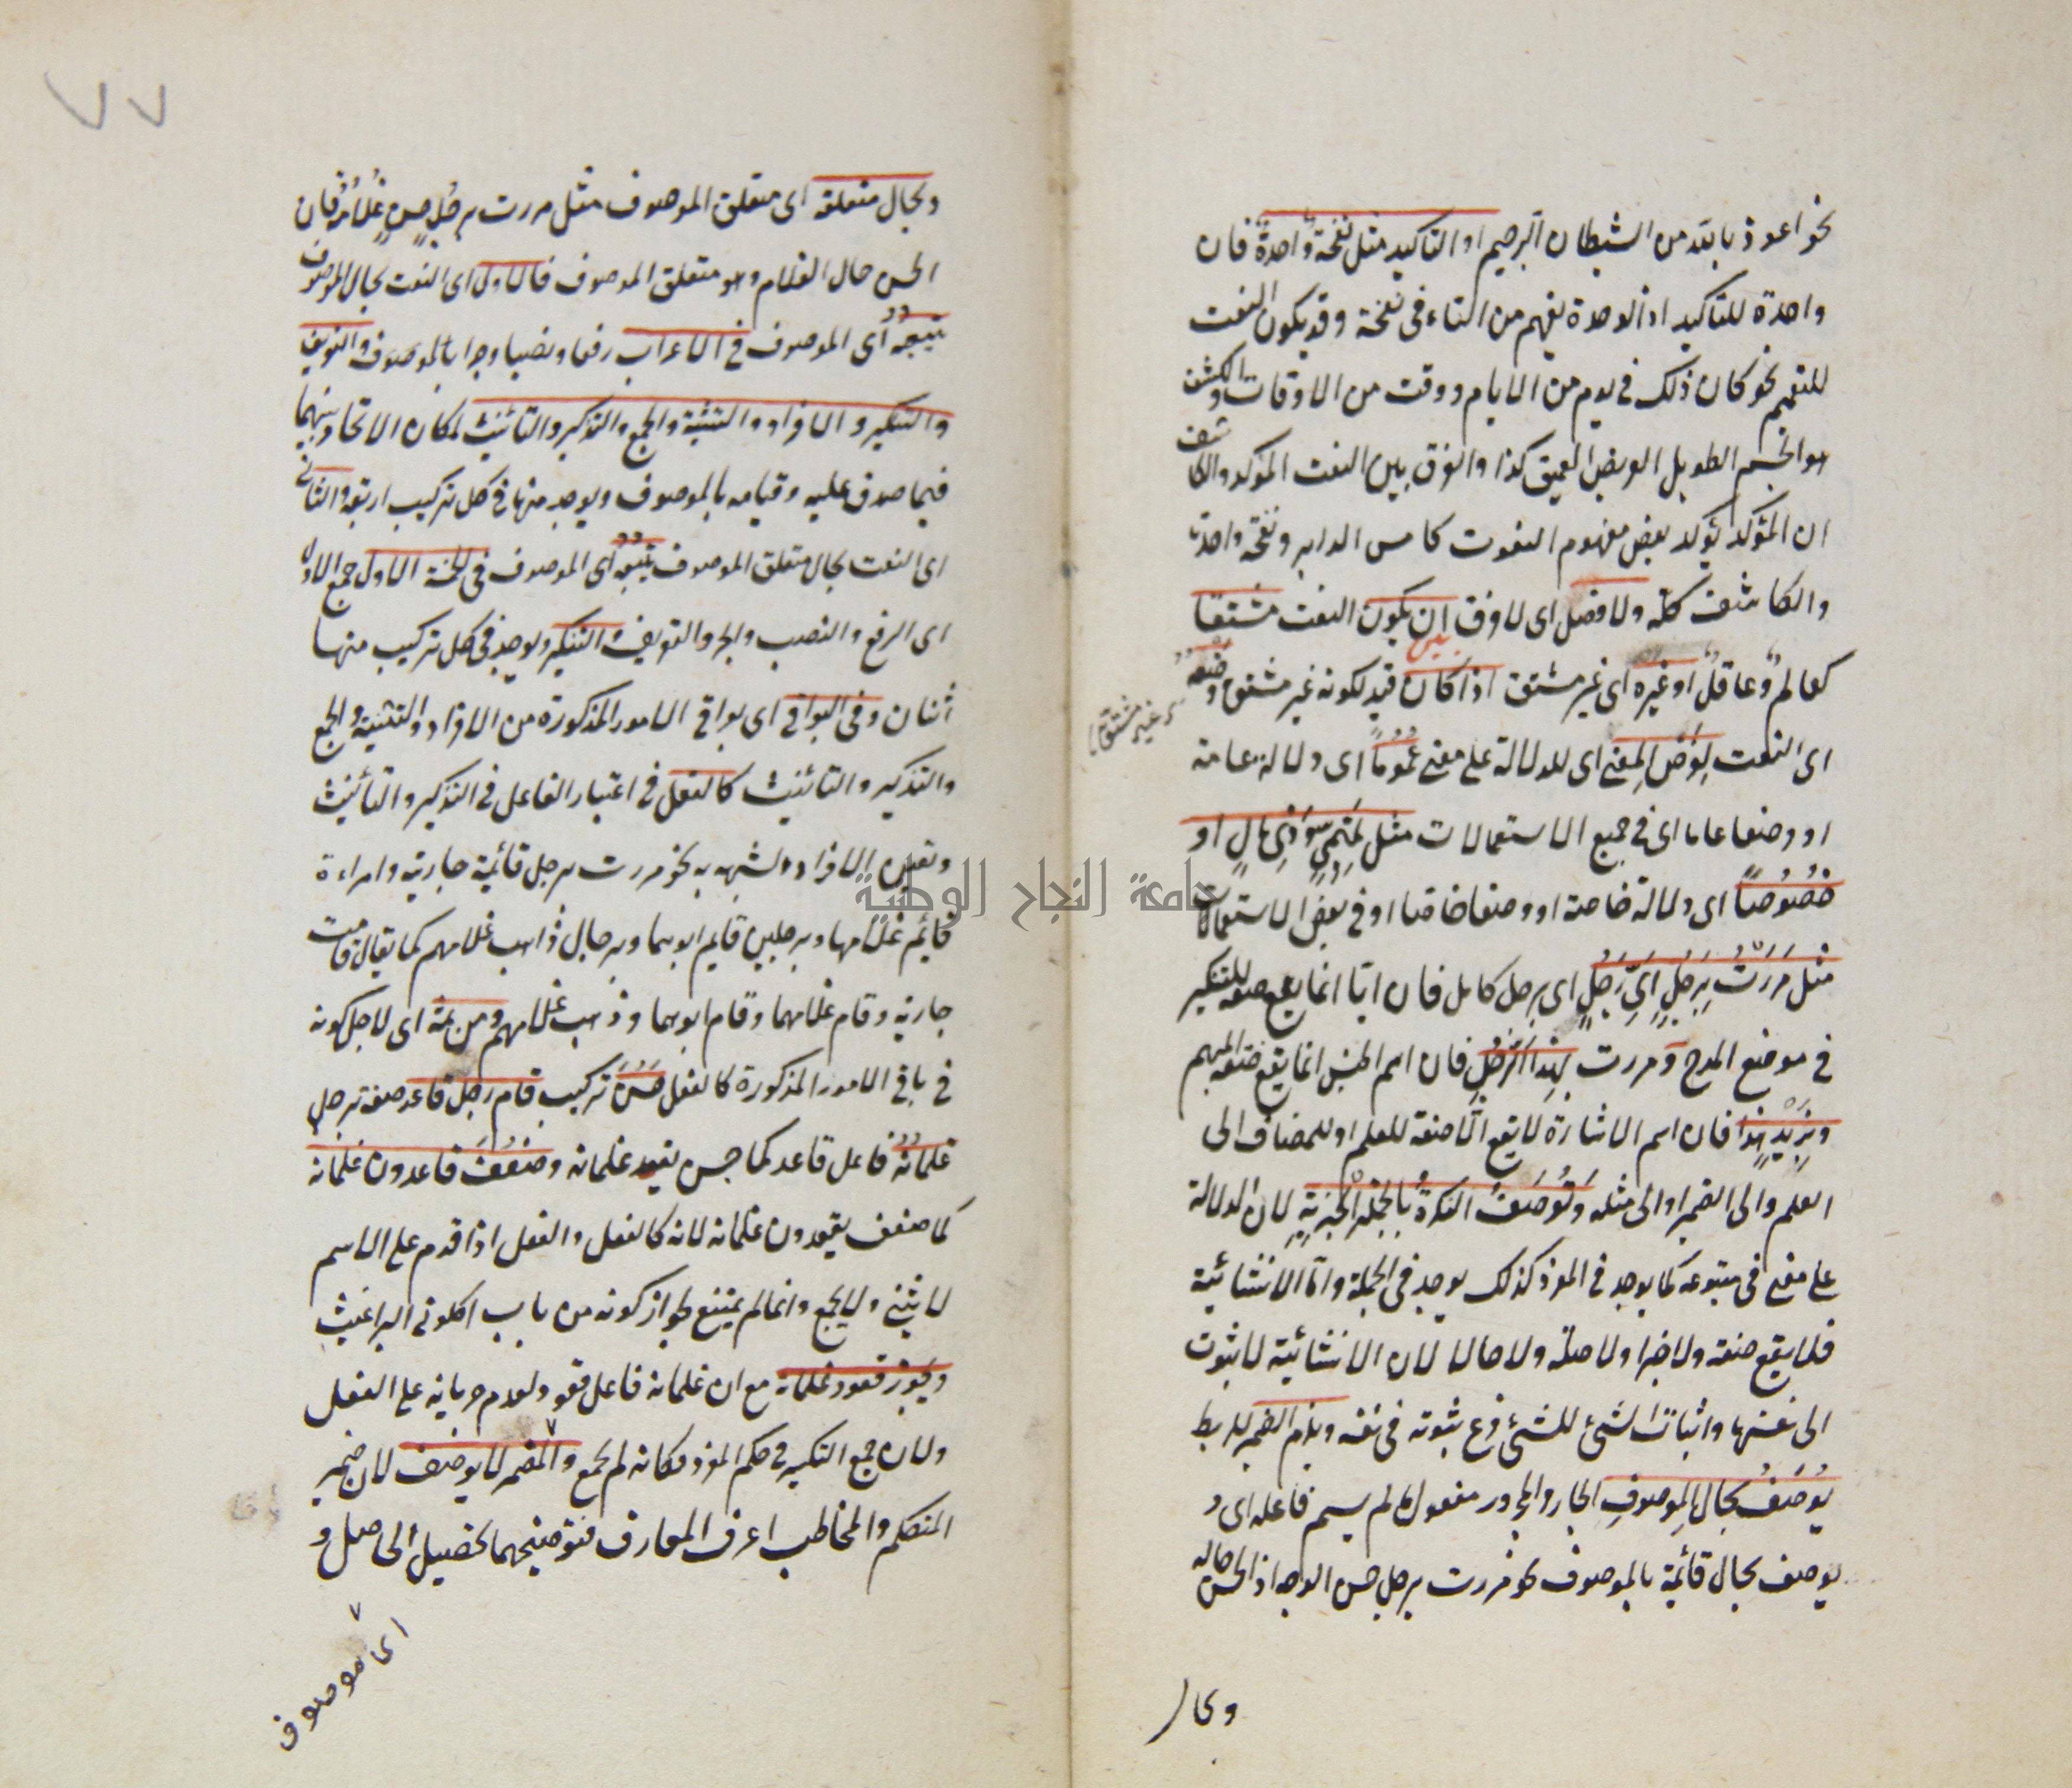 نحو اعوذ بالله من الشيطان الرجيم او التاكيد مثل نفخة واحدة فان
واحدة للتاكيد اذ الوحدة يفهم من التاء فى نفخة وقد يكون النعت
للتعميم نحو كان ذلك فى يوم من الايام ووقت من الاوقات والكشف
هو الجسم الطويل العريض العميق كذا والفرق بين النعت المؤكد والكاشف
ان المؤكد يؤكد بعض مفهوم النعوت كامس الدابر ونفخة واحدة
والكاشف كله ولا فصل اى لا فرق بين ان يكون النعت مشتقا
كعالم وعاقل او غيره اى غير مشتق اذا كان قيد لكونه غير مشتق وضعه
اى غير مشتق
اى النعت لغرض المعنى اى للدلالة على معنى عموما اى دلالة عامة
او وضعا عاما اى فى جميع الاستعمالات مثل تميمى وذى مال او
خصوصا اى دلالة خاصة او وضعا خاصا او فى بعض الاستعمالات
مثل مررت برجل اى رجل اى برجل كامل فان ايا انما يقع صفة للتنكير
فى موضع المدح ومررت بهذا الرجل فان اسم الجنس انما يقع صفة المبهم
وبزيد هذا فان اسم الاشارة لا يقع الا صفة للعلم او للمضاف الى
العلم والى الضمير او الى مثله وتوصف النكرة بالجملة الخبرية لان الدلالة
على معنى فى متبوعه كما يوجد فى المفرد كذلك يوجد فى الجملة واما الانشائية
فلا يقع صفة ولا خبرا ولا صلة ولا حالا لان الانشائية لا ثبوت
الى نفسها واثبات الشئ للشئ فرع ثبوته فى نفسه ويلزم الضمير للربط
يوصف بحال الموصوف الجار والمجرور مفعول ما لم يسم فاعله اى و
يوصف بحال قائمة بالموصوف نحو مررت برجل حسن الوجه اذ الحسن حاله
وبحال
٧٧
وبحال متعلقه اى متعلق الموصوف مثل مررت برجل حسن غلامه فان
الحسن حال الغلام وهو متعلق الموصوف فالاول اى النعت بحال الموصوف
يتبعه اى الموصوف فى الاعراب رفعا ونصبا وجرا بالموصوف والتعريف
والتنكير والافراد والتثنية والجمع والتذكير والتانيث لمكان الاتحاد بينهما
فيما صدق عليه وقيامه بالموصوف ويوجد منها فى كل تركيب اربعة والثانى
اى النعت بحال متعلق الموصوف يتبعه اى الموصوف فى الخمسة الاول جمع الاولى
اى الرفع والنصب والجر والتعريف والتنكير ويوجد فى كل تركيب منها
اثنان وفى البواقى اى بواقى الامور المذكورة من الافراد والتثنية والجمع
والتذكير والتانيث كالفعل فى اعتبار الفاعل فى التذكير والتأنيث
وتعين الافراد لشبهه به نحو مررت برجل قائمة جاريته وامراءة
قائم غلامها وبرجلين قايم ابوهما وبرجال ذاهب غلامهم كما يقال قامت
جاريته وقام غلامهما وقام ابوهما وذهب غلامهم ومن ثمة اى لاجل كونه
فى باقى الامور المذكورة كالفعل حسن تركيب قام رجل قاعد صفة رجل
غلمانه فاعل قاعد كما حسن يقعد غلمانه وضعف قاعدون غلمانه
كما ضعف يقعدون غلمانه لانه كالفعل والفعل اذا قدم على الاسم
لا يثنى ولا يجمع وانما لم يمتنع لجواز كونه من باب اكلونى البراغيث
ويجوز قعود غلمانه مع ان غلمانه فاعل قعود لعدم جريانه على الفعل
ولان جمع التكسير فى حكم المفرد فكانه لم يجمع والمضمر لا يوصف لان ضمير
المتكلم والمخاطب اعرف المعارف فتوضيحهما تحصيل الحاصل و
اى موصوف
جامعة النجاح الوطنية